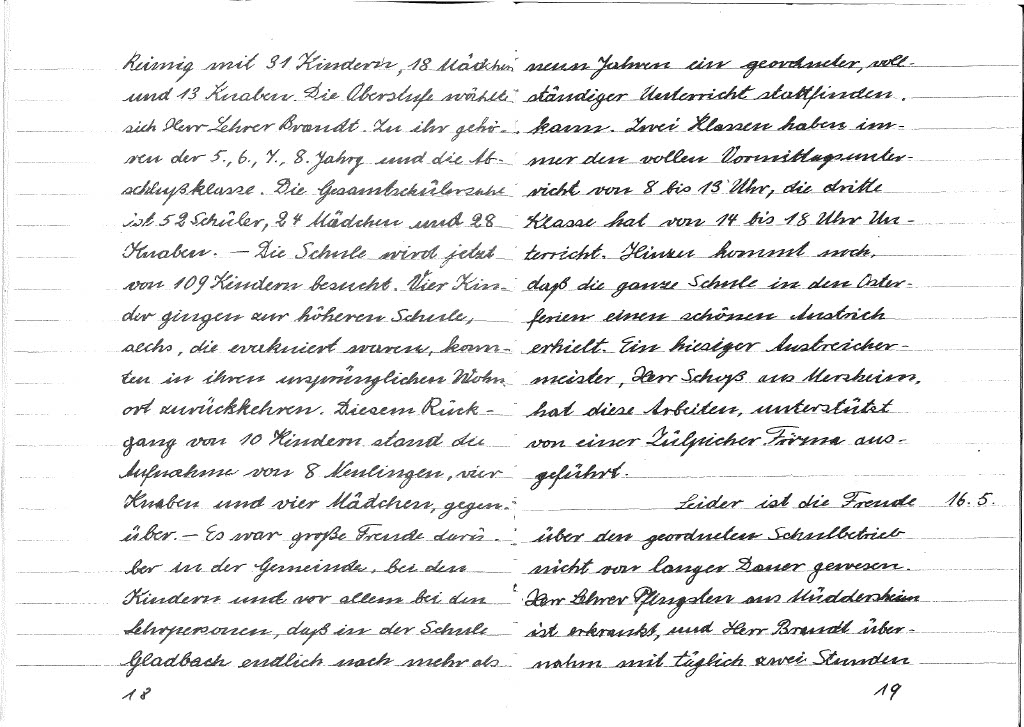 Reimig mit 31 Kinderin, 18 Mädchen
und 13 Knaben. Die Oberstufe wählte
sich Herr Lehrer Brandt. Zu ihr gehö-
ren der 5., 6., 7., 8. Jahrg und die Ab-
schlußklasse. Die Gesamtschülerzahl
ist 52 Schüler, 24 Mädchen und 28
Knaben. — Die Schule wird jetzt
von 109 Kindern besucht. Vier Kin-
der gingen zur höheren Schule,
sechs, die evakuiert waren, konn-
ten in ihren ursprünglichen Wohn
ort zurückkehren. Diesem Rück-
gang von 10 Kindern stand die
Aufnahme von 8 Neulingen, vier
Knaben und vier Mädchen, gegen-
über. — Es war große Freude darü-
ber in der Gemeinde, bei den
Kindern und vor allem bei den
Lehrpersonen, daß in der Schule
Gladbach endlich nach mehr als
18
neun Jahren ein geordneter, voll-
ständiger Unterricht stattfinden
kann. Zwei Klassen haben im-
mer den vollen Vormittagsunter-
richt von 8 bis 13 Uhr, die dritte
Klasse hat von 14 bis 18 Uhr Un-
terricht. Hinzu kommt noch,
daß die ganze Schule in den Oster-
ferien einen schönen Anstrich
erhielt. Ein hiesiger Anstreicher-
meister, Herr Schoß aus Mersheim,
hat diese Arbeiten, unterstützt
von einer Zülpicher Firma aus-
geführt.
Leider ist die Freude 16.5.
über den geordneten Schulbetrieb
nicht von langer Dauer gewesen.
Herr Lehrer Pfingsten aus Müddersheim
ist erkrankt, und Herr Brandt über-
nahm mit täglich zwei Stunden
19